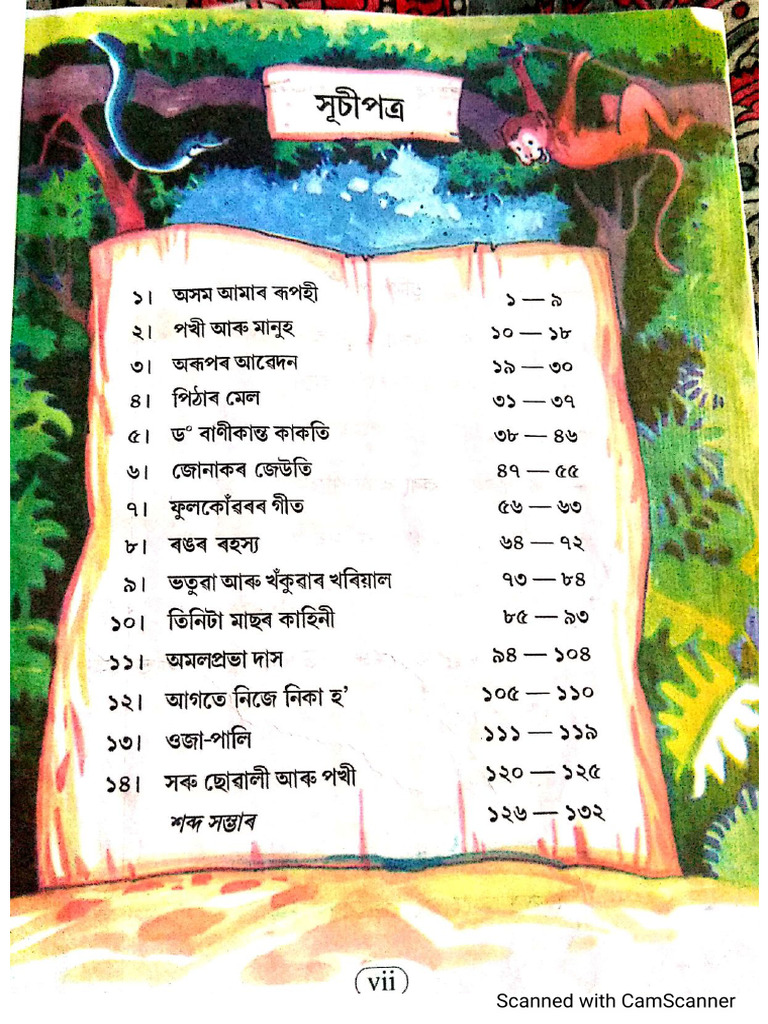 সূচীপত্ৰ
১। অসম আমাৰ ৰূপহী ১ — ৯
২। পখী আৰু মানুহ ১০ — ১৮
৩। অৰূপৰ আৱেদন ১৯ — ৩০
৪। পিঠাৰ মেল ৩১ — ৩৭
৫। ড° বাণীকান্ত কাকতি ৩৮ — ৪৬
৬। জোনাকৰ জেউতি ৪৭ — ৫৫
৭। ফুলকোঁৱৰৰ গীত ৫৬ — ৬৩
৮। ৰঙৰ ৰহস্য ৬৪ — ৭২
৯। ভতুৱা আৰু খঁকুৱাৰ খৰিয়াল ৭৩ — ৮৪
১০। তিনিটা মাছৰ কাহিনী ৮৫ — ৯৩
১১। অমলপ্ৰভা দাস ৯৪ — ১০৪
১২। আগতে নিজে নিকা হ’ ১০৫ — ১১০
১৩। ওজা-পালি ১১১ — ১১৯
১৪। সৰু ছোৱালী আৰু পখী ১২০ — ১২৫
শব্দ সম্ভাৰ ১২৬ — ১৩২
vii
Scanned with CamScanner